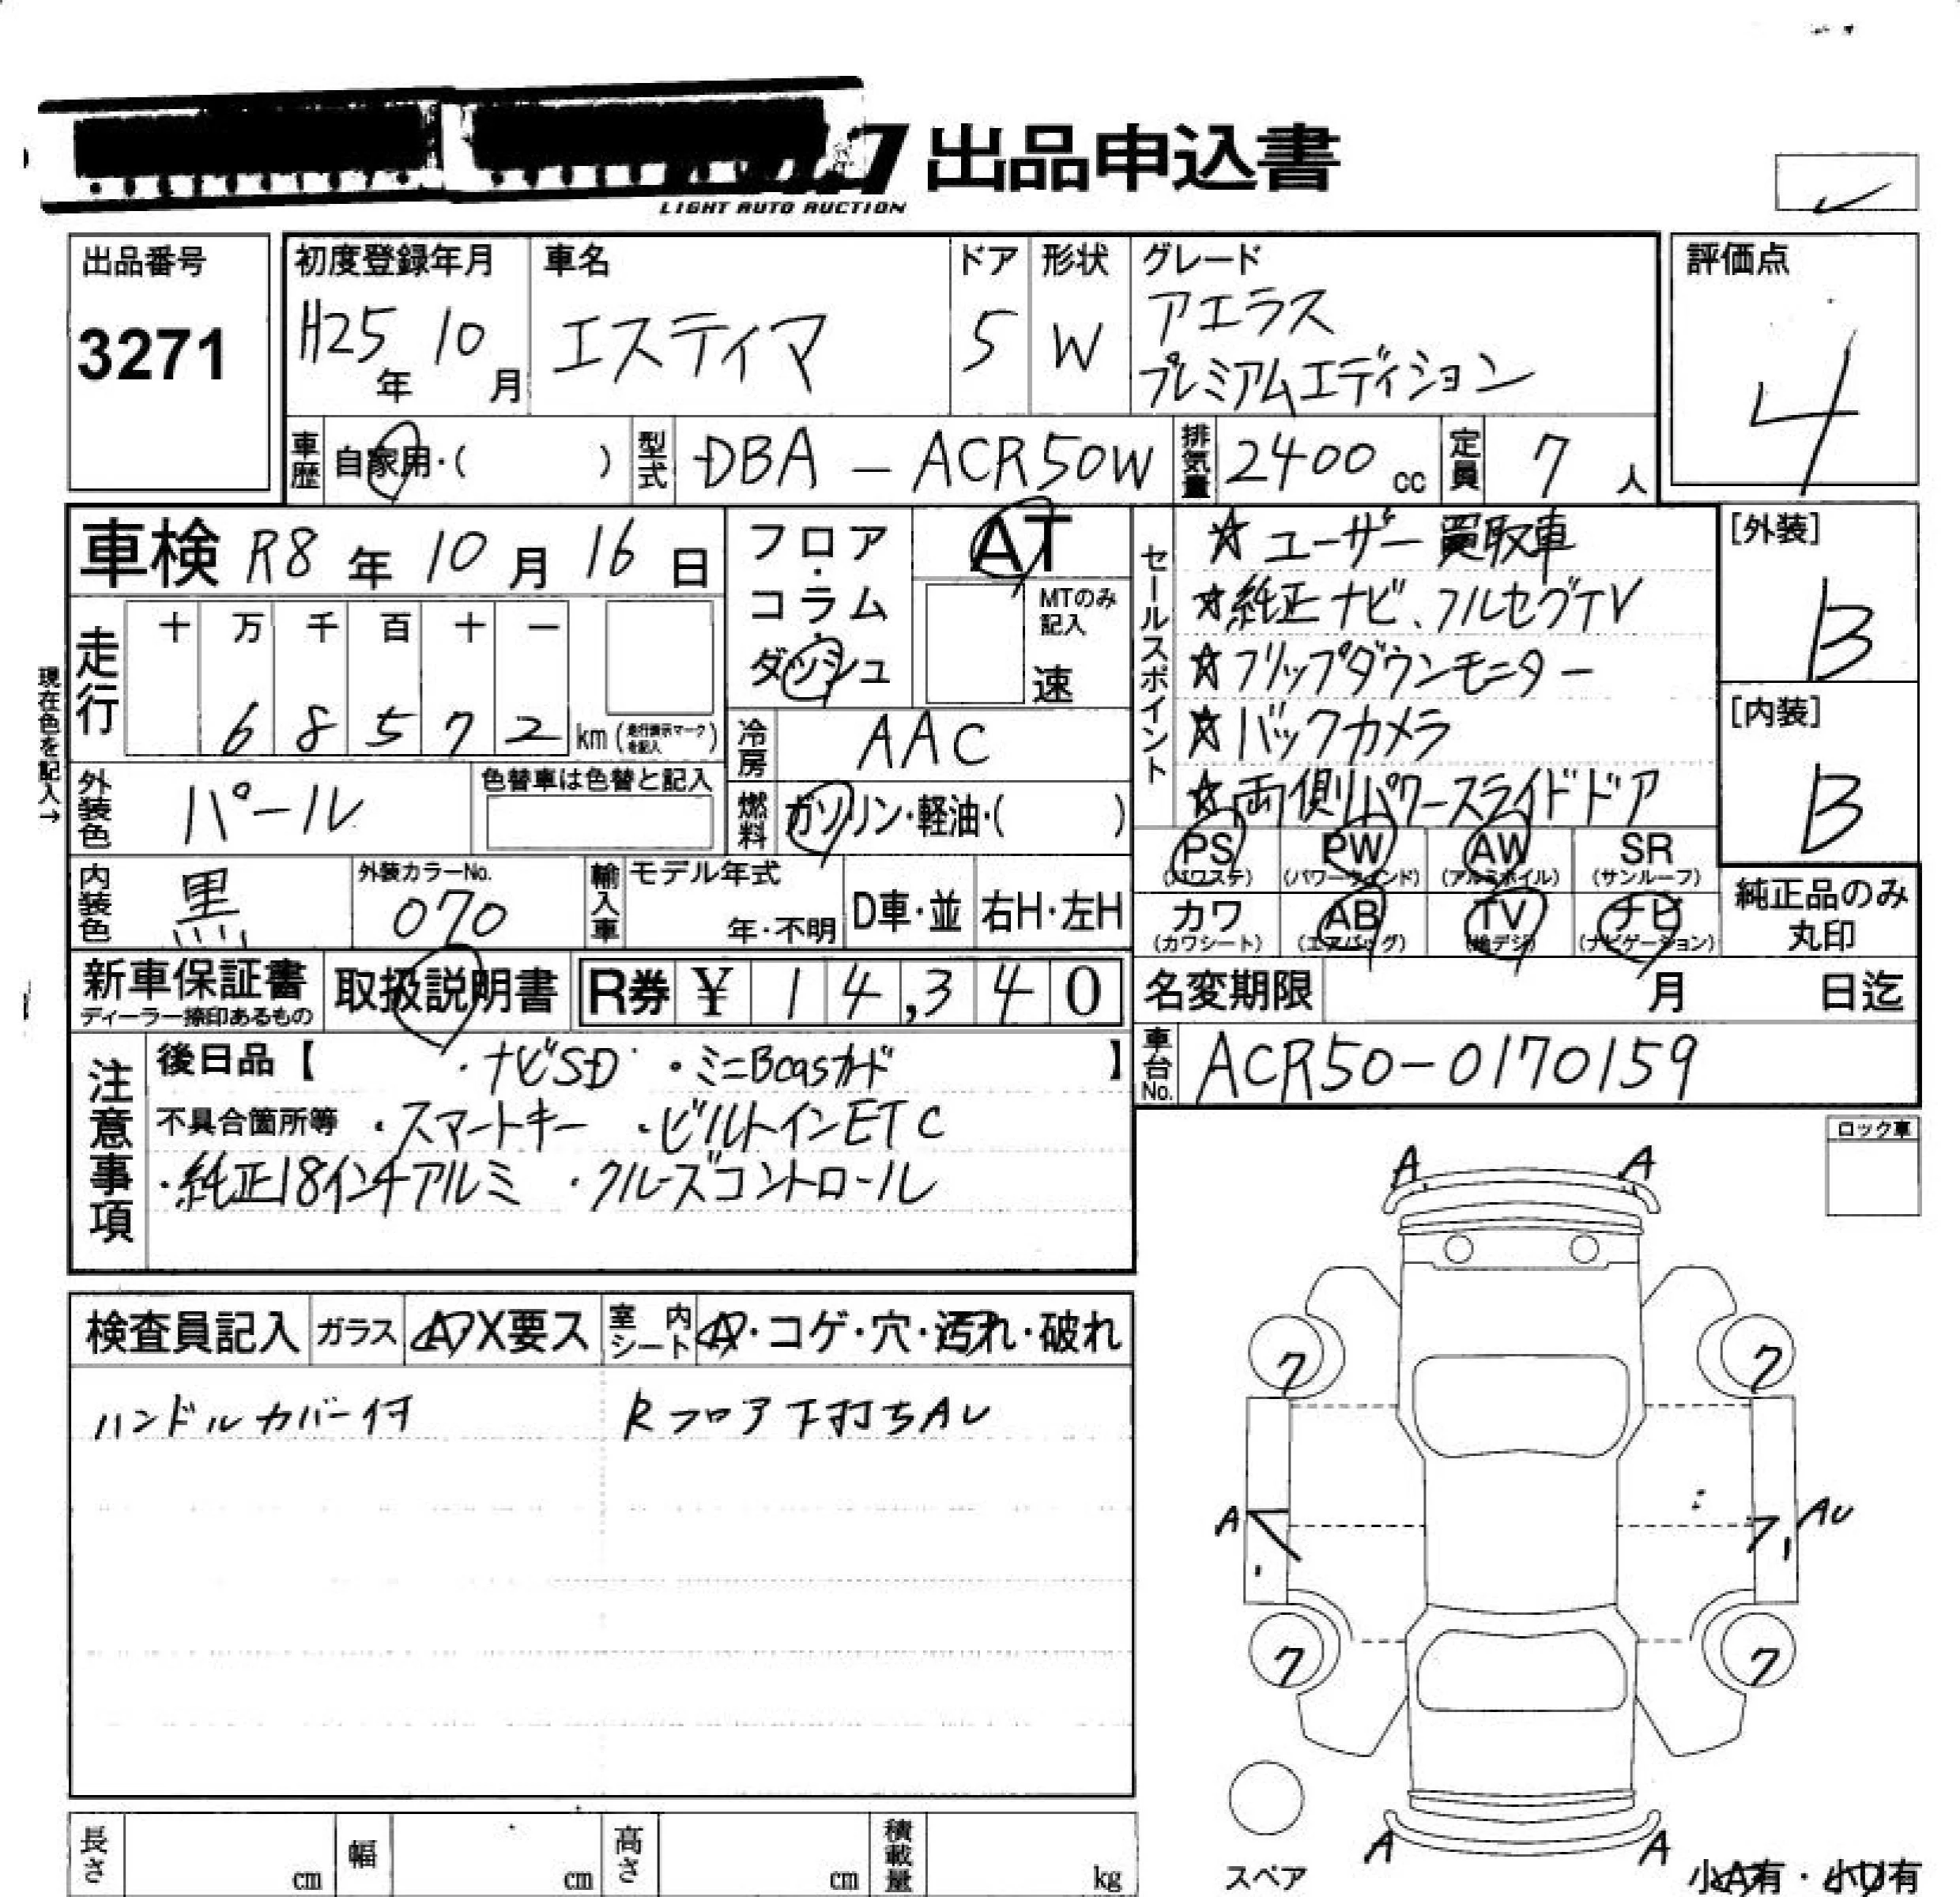 出品申込書
LIGHT AUTO AUCTION
出品番号
3271
初度登録年月
H25年 10月
車名
エスティマ
ドア
5
形状
W
グレード
アエラス
プレミアムエディション
評価点
4
車歴 自家用・( )
型式 DBA-ACR50W
排気量 2400 cc
定員 7 人
車検 R8年 10月 16日
フロア・コラム・ダッシュ
AT
MTのみ記入
速
セールスポイント
☆ ユーザー買取車
☆純正ナビ、フルセグTV
☆フリップダウンモニター
☆バックカメラ
☆両側パワースライドドア
[外装]
B
[内装]
B
現在色を記入→
走行
十 万 千 百 十 一
6 8 5 7 2 km(走行表示マークを記入)
冷房 AAC
外装色 パール
色替車は色替と記入
燃料 ガソリン・軽油・( )
PS (パワステ)
PW (パワーウインド)
AW (アルミホイル)
SR (サンルーフ)
カワ (カワシート)
AB (エアバッグ)
TV (地デジ)
ナビ (ナビゲーション)
純正品のみ丸印
内装色 黒
外装カラーNo.
070
輸入車 モデル年式
年・不明
D車・並
右H・左H
新車保証書
ディーラー捺印あるもの
取扱説明書
R券 ¥ 14,340
名変期限 月 日迄
車台No. ACR50-0170159
注意事項
後日品【 ・ナビSD ・ミニBcasカード 】
不具合箇所等 ・スマートキー ・ビルトインETC
・純正18インチアルミ ・クルーズコントロール
ロック車
検査員記入 ガラス A X要ス 室内シート A・コゲ・穴・汚れ・破れ
ハンドルカバー付
Rフロア下打ちAU
A A
7 7
A AU
7 7
A A
スペア
小A有・小U有
長さ cm
幅 cm
高さ cm
積載量 kg